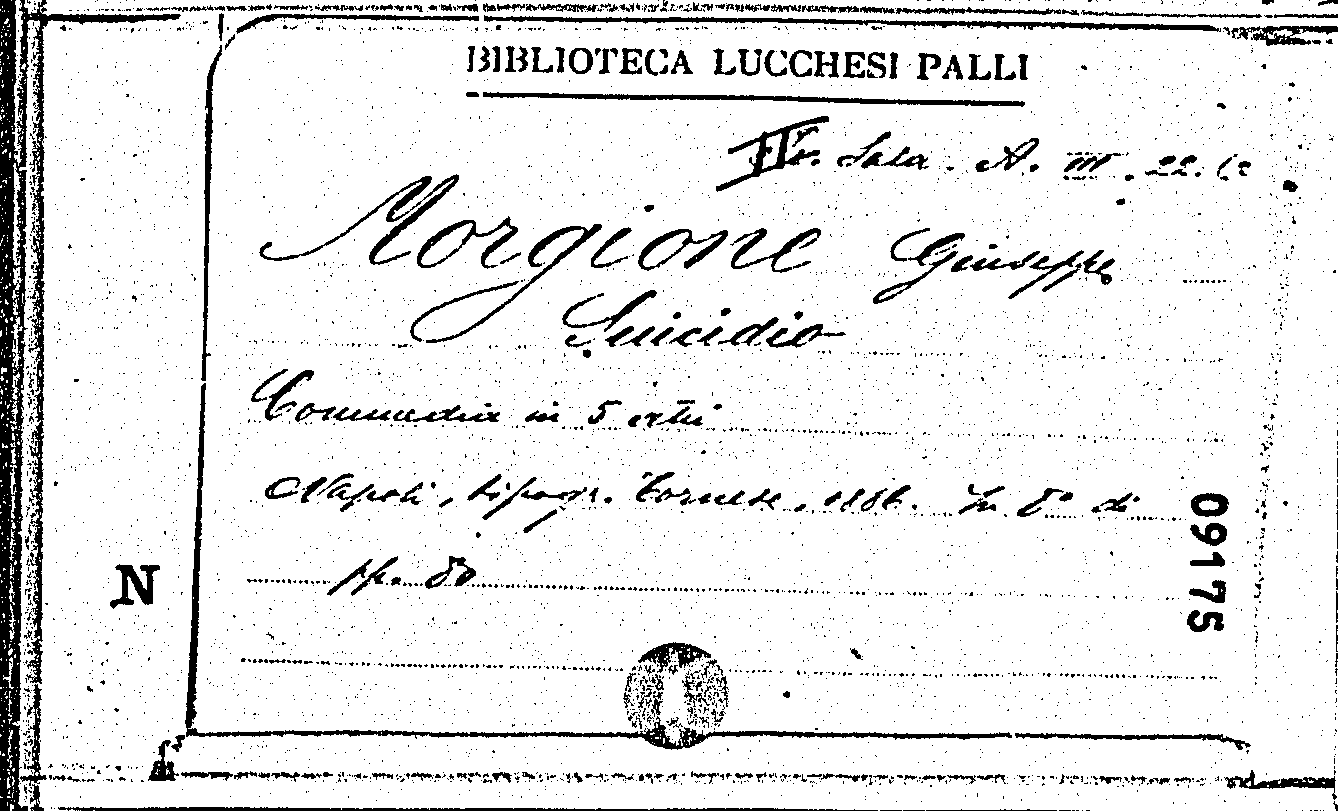 BIBLIOTECA LUCCHESI PALLI
Sala. A. III. 22.
Morgione Giuseppe
Suicidio
Commedia in 5 atti
Napoli, tipogr. Tornese, 1886. In 8° di
pp. 80
09175
N